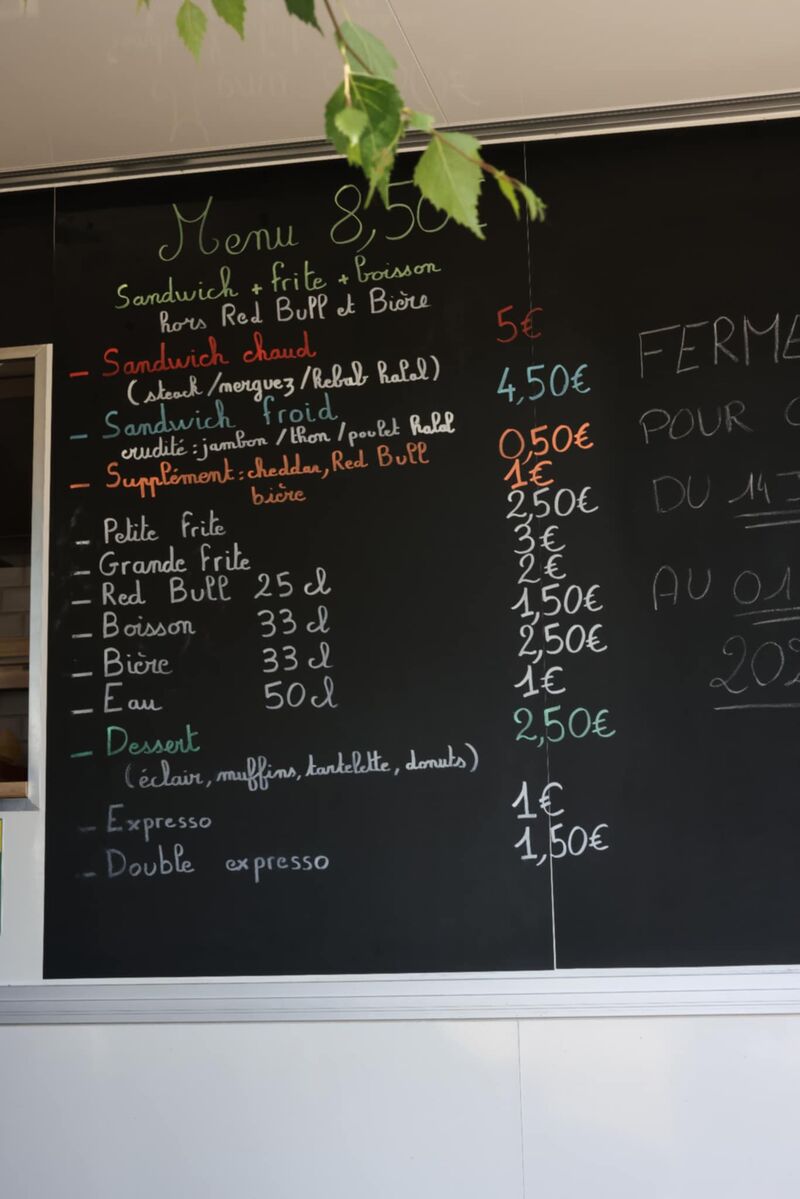 Menu 8,50
Sandwich + frite + boisson
hors Red Bull et Bière
- Sandwich chaud 5€
(steack/merguez/kebab halal)
- Sandwich froid 4,50€
crudité : jambon/thon/poulet halal
- Supplément : cheddar, Red Bull 0,50€
bière 1€
- Petite frite 2,50€
- Grande frite 3€
- Red Bull 25 cl 2€
- Boisson 33 cl 1,50€
- Bière 33 cl 2,50€
- Eau 50 cl 1€
- Dessert 2,50€
(éclair, muffins, tartelette, donuts)
- Expresso 1€
- Double expresso 1,50€
FERME
POUR
DU 14
AU 01
202